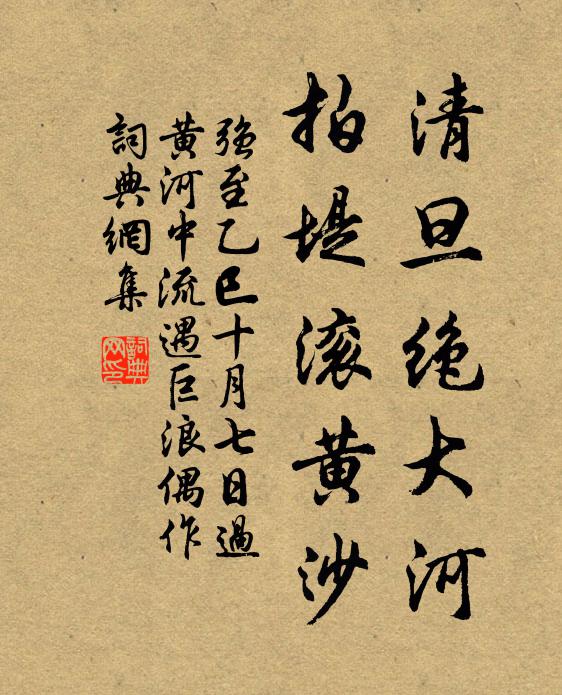 清旦绝大河
拍堤滚黄沙
强至乙巳十月七日過
黄河中流遇巨浪偶作
詞典網集
詞典网印